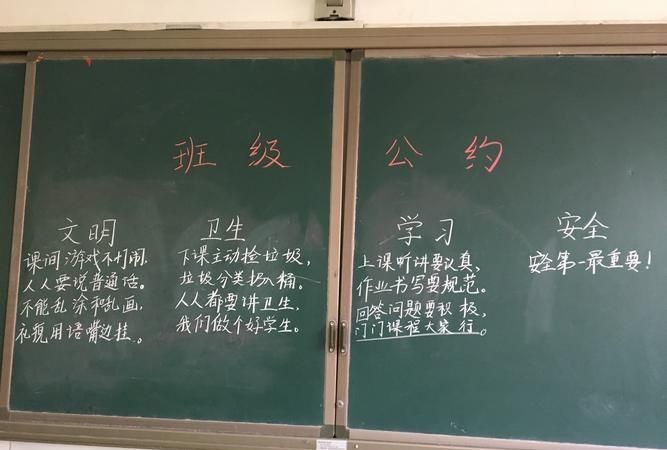 班级公约
文明
课间游戏不打闹.
人人要说普通话。
不能乱涂和乱画,
礼貌用语嘴边挂。
卫生
下课主动捡垃圾,
垃圾分类扔入桶。
人人都要讲卫生,
我们做个好学生。
学习
上课听讲要认真,
作业书写要规范。
回答问题要积极,
门门课程大家行。
安全
安全第一最重要!